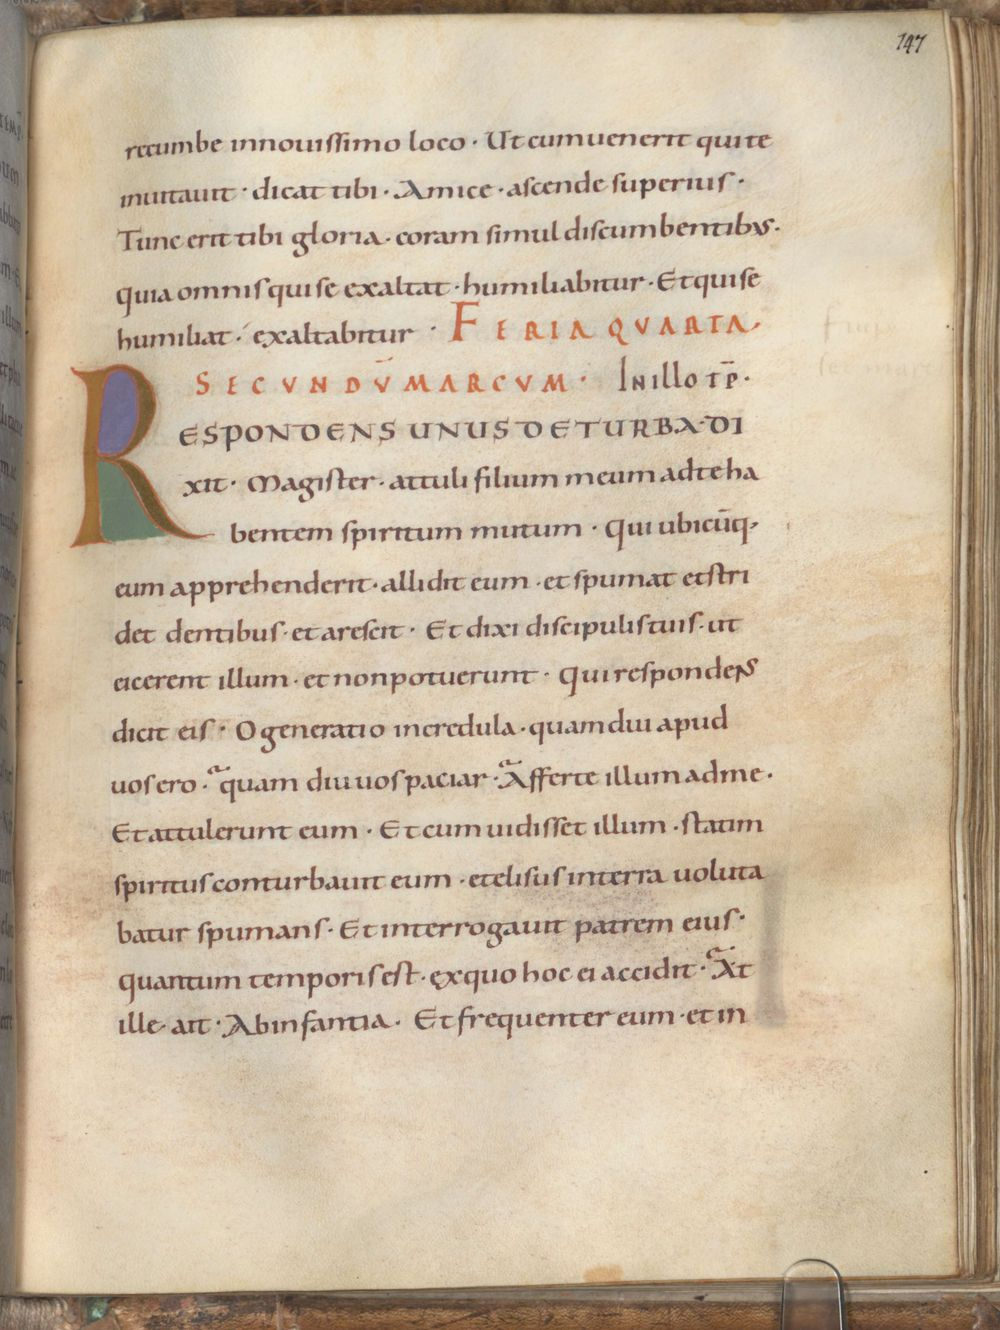 147
recumbe innouissimo loco · Ut cum uenerit qui te
inuitauit · dicat tibi · Amice · ascende superius ·
Tunc erit tibi gloria · coram simul discumbentibus ·
quia omnis qui se exaltat · humiliabitur · Et qui se
humiliat · exaltabitur · FERIA QVARTA
SECVNDV̄ MARCVM · In illo tp̄ ·
RESPONDENS UNUS DE TURBA · DI
xit · Magister · attuli filium meum ad te ha
bentem spiritum mutum · qui ubicūq·
eum apprehenderit · allidit eum · et spumat et stri
det dentibus · et arescit · Et dixi discipulis tuis · ut
eicerent illum · et non potuerunt · Qui respondens
dicit eis · O generatio incredula · quamdiu apud
uos ero · quam diu uos paciar · Afferte illum ad me ·
Et attulerunt eum · Et cum uidisset illum · statim
spiritus conturbauit eum · et elisus in terra uoluta
batur spumans · Et interrogauit patrem eius ·
quantum temporis est · ex quo hoc ei accidit · At
ille · ait · Ab infantia · Et frequenter eum · et in